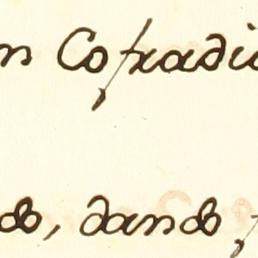 n Cofradi
do, dando,